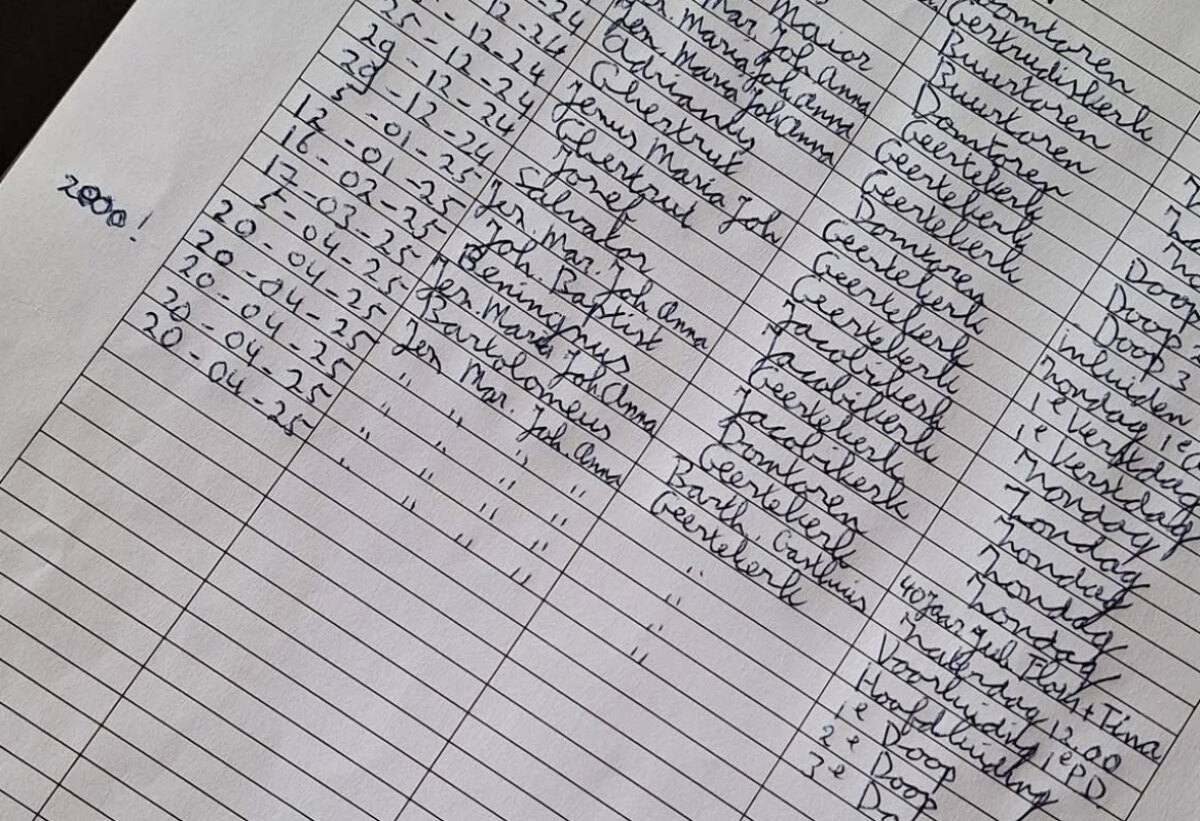 Domtoren
Maior Gertrudiskerk
Mar. Joh Anna Buurtoren
Maria Joh Anna Buurtoren
Jes. Maria Joh Anna Domtoren
-24 Adrianus Geertekerk Doop
12-24 Ghertrut Geertekerk Doop
- 12-24 Jesus Maria Joh Geertekerk Doop 3
25 - 12-24 Ghertrut Domtoren inluiden
29 - 12-24 Jozef Geertekerk zondag 1e
29 - 12-24 Salvator Geertekerk 1e Kerstdag
5 - 01-25 Jes. Mar. Joh Anna Geertekerk 1e Kerstdag
12 - 01-25 Joh. Baptist Jacobikerk zondag
16 - 02-25 Beningnus Jacobikerk zondag
17-03-25 Jes. Maria Joh Anna Geertekerk zondag
5-04-25 Bartolomeus Jacobikerk zondag
2000! 20-04-25 Jes Mar. Joh. Anna Domtoren 40 jaar jub + Tina
20-04-25 " " " " Geertekerk zaterdag 12.00
20-04-25 " " " " Barth. Gasthuis Voorluiding 1e PD
20-04-25 " " " " Geertekerk Hoofdluiding
20-04-25 " " " " " 1e Doop
" 2e Doop
" 3e Do
"